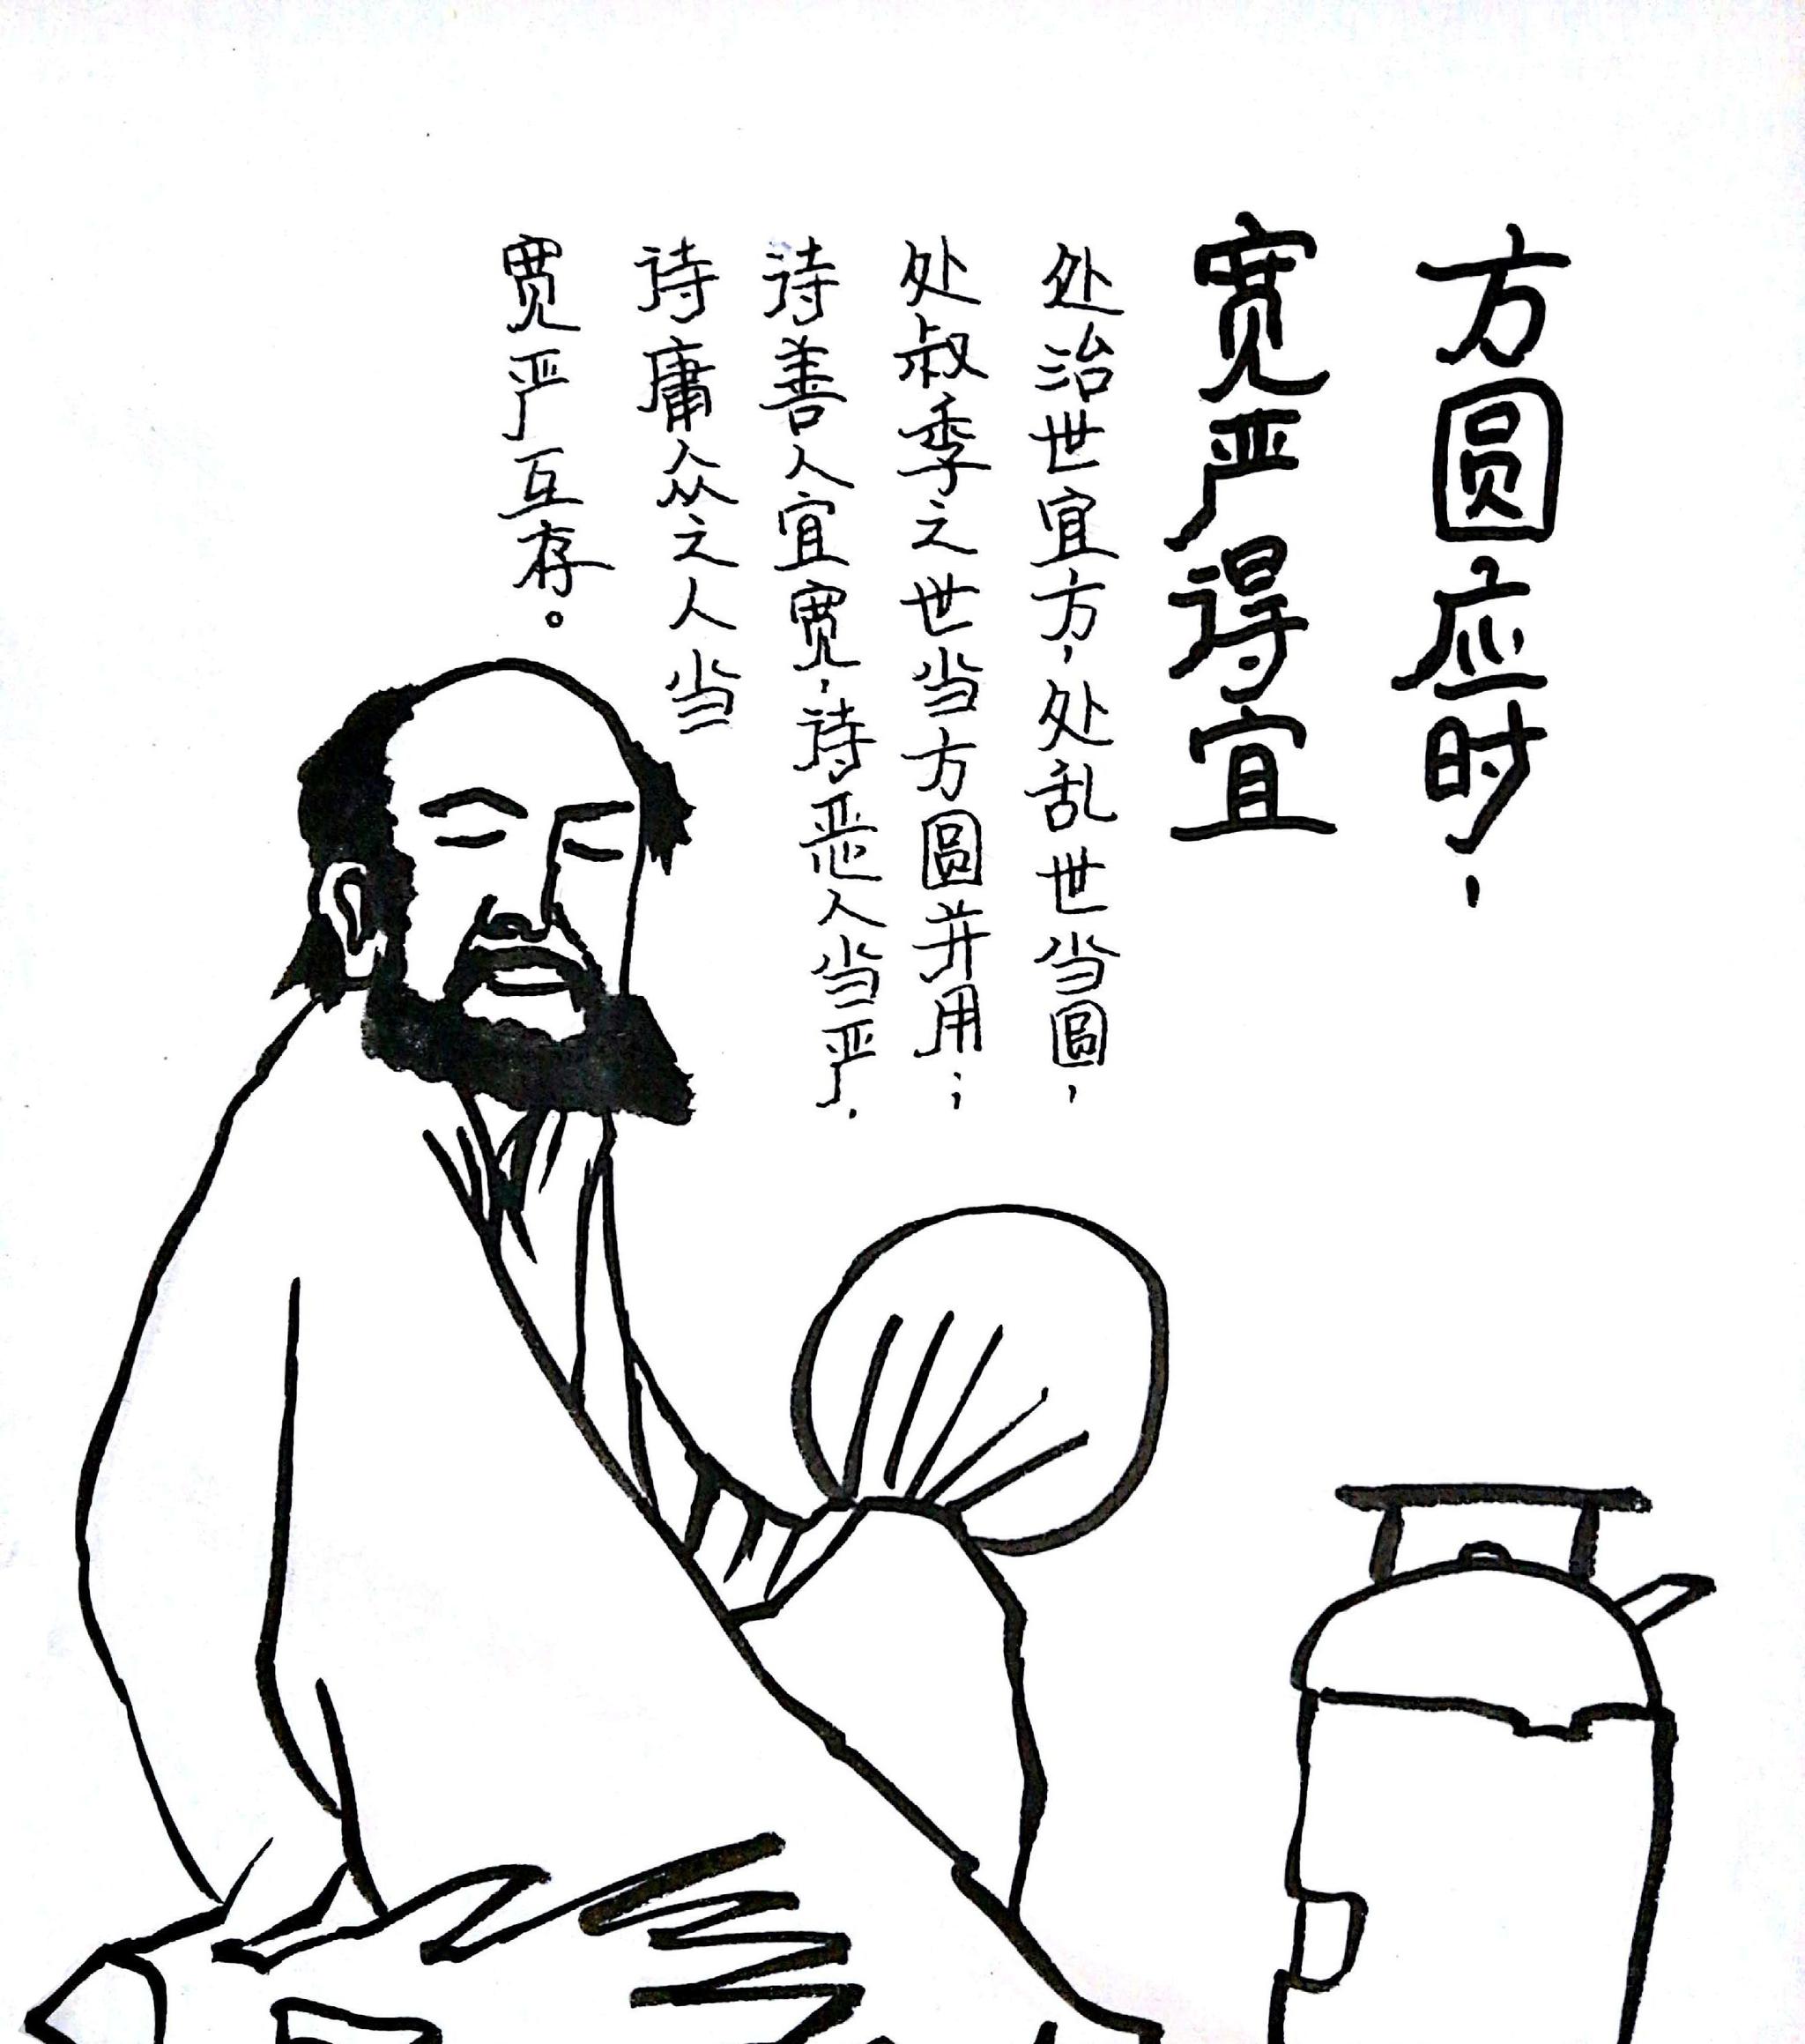 方圆应时，
宽严得宜
处治世宜方，处乱世当圆，
处叔季之世当方圆并用；
诗善人宜宽，诗恶人当严．
诗庸众之人当
宽严互存。